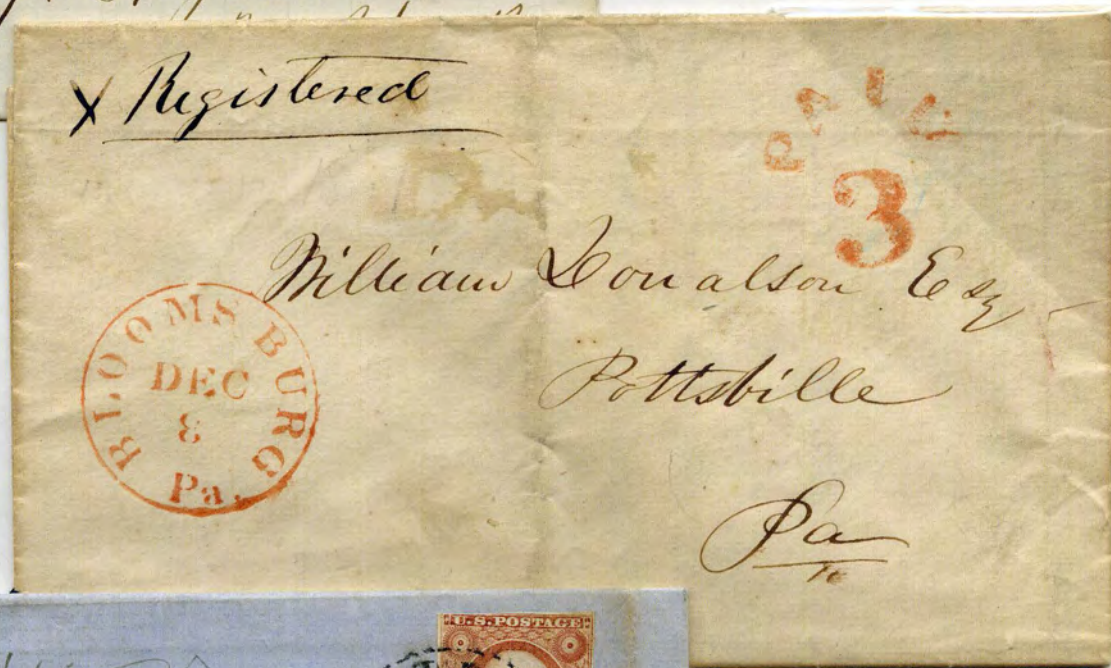 X Registered
PAID
3
William Donalson Esq
Pottsville
Pa
BLOOMSBURG
DEC
8
Pa.
U.S. POSTAGE